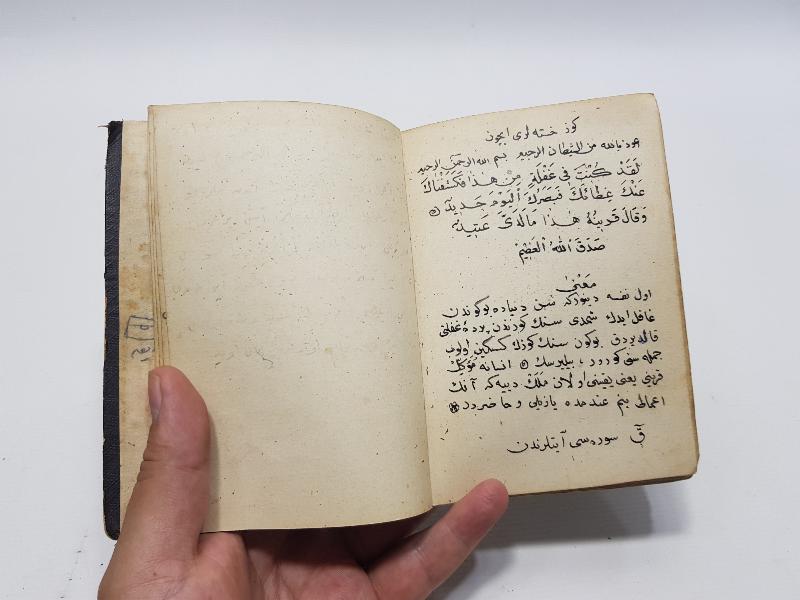 كوز خسته لرى ايچون
اعوذ بالله من الشيطان الرجيم بسم الله الرحمن الرحيم
لَقَدْ كُنْتَ فى غَفْلَةٍ مِنْ هٰذَا فَكَشَفْنَاكَ
عَنْكَ غِطَائَكَ فَبَصَرُكَ اَلْيَوْمَ حَدِيدٌ
وَقَالَ قَرِينُهُ هٰذَا مَالَدَىَّ عَتِيدٌ
صَدَقَ اللهُ الْعَظِيمْ
مَعْنٰى
اول نفسه دينوركه سين دنياده بوكوندن
غافل ايدك شمدى سنك كوزندن پردهٔ غفلتى
قالديردق بوكون سنك كوزك كسكين اولوب
جمله سنى كورور ، بيليرسك انسانه مؤكل
قرينى يعنى يقينى اولان ملك دييه كه آنك
اعمالى بنم عندمده يازيلى و حاضردر
قٓ سوره سى آيتلرندن